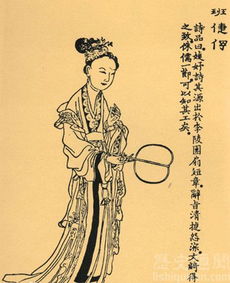 班倢伃
詩品曰婕妤詩其源出於李陵團扇短章辭旨清捷怨深文綺得
之致侏儒一節可以知其工矣